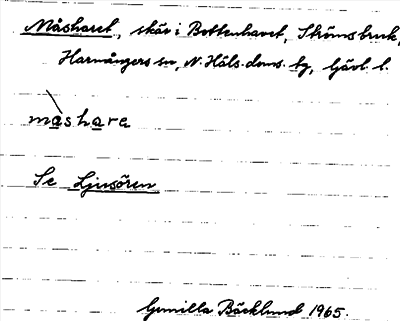 Måsharet, skär i Bottenhavet, Strömsbruk,
Harmångers sn, N. Häls. doms. tg, Gävl. l.
måshare
Se Ljusören
Gunilla Bäcklund 1965.